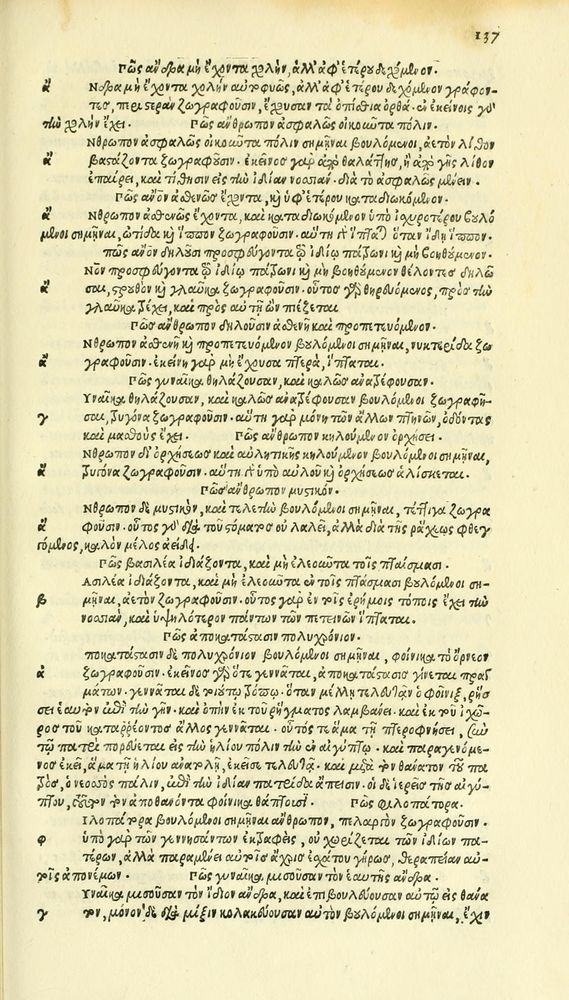 137
Πῶς ἄνδρα μὴ ἔχοντα χολὴν, ἀλλ' ἀφ' ἑτέρου δεχόμενον.
ἄ Νδρα μὴ ἔχοντα χολὴν αὐτοφυῶς, ἀλλ' ἀφ' ἑτέρου δεχόμενον γράφον-
τες, περιστερὰν ζωγραφοῦσιν, ἔχουσαν τὰ ὀπίσθια ὀρθά· ἐν ἐκείνοις γὸ
τὴν χολὴν ἔχει. Πῶς ἄνθρωπον ἀσφαλῶς οἰκοῦντα πόλιν.
Νθρωπον ἀσφαλῶς οἰκοῦντα πόλιν σημῆναι βουλόμενοι, ἀετὸν λίθον
ἄ βαστάζοντα ζωγραφοῦσιν· ἐκεῖνος γὰρ ἀπὸ θαλάττης, ἢ ἀπὸ γῆς λίθον
ἐπαίρει, καὶ τίθησιν εἰς τὴν ἰδίαν νοσσιὰν, διὰ τὸ ἀσφαλῶς μένειν.
Πῶς ἄνον ἀσθενῶς ἔχοντα, κỳ ὑφ' ἑτέρου καταδιωκόμενον.
ἄ Νθρωπον ἀσθενῶς ἔχοντα, καὶ καταδιωκόμενον ὑπὸ ἰσχυροτέρου βουλό
μενοι σημῆναι, ὠτίδα κỳ ἵππον ζωγραφοῦσιν· αὕτη γὸ ἵπταται ὅταν ἴδῃ ἵππον.
πῶς ἄνον δηλοῦσι προσφεύγοντα τῷ ἰδίῳ πάτρωνι κỳ μὴ βοηθούμενον.
Νον προσφεύγοντα τῷ ἰδίῳ πάτρωνι κỳ μὴ βοηθούμενον θέλοντες δηλῶ
ἄ σαι, στρουθὸν κỳ γλαῦκα ζωγραφοῦσιν· οὗτος γὸ θηρευόμενος, πρὸς τὴν
γλαῦκα τρέχει, καὶ πρὸς αὐτῇ ὢν πιέζεται
Πῶς ἄνθρωπον δηλοῦσιν ἀσθενῆ καὶ προπετευόμενον.
Νθρωπον ἀσθενῆ κỳ προπετευόμενον βουλόμενοι σημῆναι, νυκτερίδα ζω
ἄ γραφοῦσιν· ἐκείνη γὰρ μὴ ἔχουσα πτερὰ, ἵπταται.
Πῶς γυναῖκα θηλάζουσαν, καὶ καλῶς ἀνατρέφουσαν.
Υναῖκα θηλάζουσαν, καὶ καλῶς ἀνατρέφουσαν βουλόμενοι ζωγραφῆ-
γ σαι, τρυγόνα ζωγραφοῦσιν· αὕτη γὰρ μόνη τῶν ἄλλων πτηνῶν, ὀδόντας
καὶ μασθοὺς ἔχει. Πῶς ἄνθρωπον κηλούμενον ὀρχήσει.
Νθρωπον δι' ὀρχήσεως καὶ αὐλητικῆς κηλούμενον βουλόμενοι σημῆναι,
ἄ τρυγόνα ζωγραφοῦσιν· αὕτη γὸ ὑπὸ αὐλοῦ κỳ ὀρχήσεως ἁλίσκεται.
Πῶς ἄνθρωπον μυστικόν.
Νθρωπον δὲ μυστικὸν, καὶ τελεστὴν βουλόμενοι σημῆναι, τέττιγα ζωγρα
ἄ φοῦσιν· οὗτος γὸ διὰ τοῦ στόματος οὐ λαλεῖ, ἀλλὰ διὰ τῆς ῥάχεως φθεγ
γόμενος, καλὸν μέλος ἀείδει.
Πῶς βασιλέα ἰδιάζοντα, καὶ μὴ ἐλεοῦντα τοῖς πταίσμασι.
Ασιλέα ἰδιάζοντα, καὶ μὴ ἐλεοῦντα ἐν τοῖς πταίσμασι βουλόμενοι ση-
β μῆναι, ἀετὸν ζωγραφοῦσιν· οὗτος γὰρ ἐν τοῖς ἐρήμοις τόποις ἔχει τὴν
νοσσιὰν, καὶ ὑψηλότερον πάντων τῶν πετεινῶν ἵπταται.
Πῶς ἀποκατάστασιν πολυχρόνιον.
ποκατάστασιν δὲ πολυχρόνιον βουλόμενοι σημῆναι, φοίνικα τὸ ὄρνεον
ἀ ζωγραφοῦσιν· ἐκεῖνος γὸ ὅτε γεννᾶται, ἀποκατάστασις γίνεται πραγ
μάτων· γεννᾶται δὲ τοιούτῳ τρόπῳ· ὅταν μέλλῃ τελευτᾷν ὁ φοῖνιξ, ῥήσ
σει ἑαυτὸν ἐπὶ τὴν γῆν· καὶ ὀπὴν ἐκ τοῦ ῥήγματος λαμβάνει· καὶ ἐκ τοῦ ἰχῶ-
ρος τοῦ καταρρέοντος ἄλλος γεννᾶται· οὗτός τε ἅμα τῷ πτεροφυῆσαι, σὺν
τῷ πατρὶ πορεύεται εἰς τὴν ἡλίου πόλιν τὴν ἐν αἰγύπτῳ· καὶ παραγενόμε-
νος ἐκεῖ, ἅμα τῇ ἡλίου ἀνατολῇ, ἐκεῖσε τελευτᾷ· καὶ μετὰ τὸν θάνατον τοῦ πα
τρὸς, ὁ νεοσσὸς πάλιν, ἐπὶ τὴν ἰδίαν πατρίδα ἄπεισιν· οἱ δὲ ἱερεῖς τῆς αἰγύ-
πτου, τοῦτον τὸν ἀποθανόντα φοίνικα θάπτουσι. Πῶς φιλοπάτορα.
Ιλοπάτορα βουλόμενοι σημῆναι ἄνθρωπον, πελαργὸν ζωγραφοῦσιν·
φ ὑπὸ γὰρ τῶν γεννησάντων ἐκτραφεὶς, οὐ χωρίζεται τῶν ἰδίων πα-
τέρων, ἀλλὰ παραμένει αὐτοῖς ἄχρις ἐσχάτου γήρως, θεραπείαν αὐ-
τοῖς ἀπονέμων. Πῶς γυναῖκα μισοῦσαν τὸν ἑαυτῆς ἄνδρα.
Υναῖκα μισοῦσαν τὸν ἴδιον ἄνδρα, καὶ ἐπιβουλεύουσαν αὐτῷ εἰς θάνα
γ τον, μόνον δὲ διὰ μίξιν κολακεύουσαν αὐτὸν βουλόμενοι σημῆναι, ἔχιν